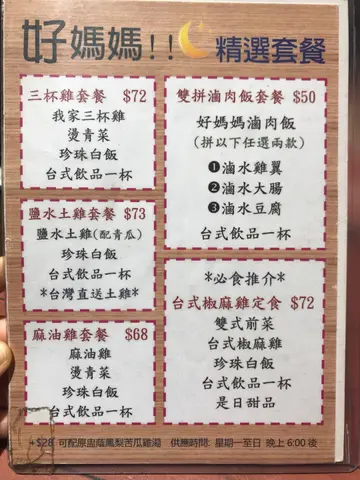 好媽媽!! 精選套餐
三杯雞套餐 $72
我家三杯雞
燙青菜
珍珠白飯
台式飲品一杯
鹽水土雞套餐 $73
鹽水土雞(配青瓜)
珍珠白飯
台式飲品一杯
*台灣直送土雞*
麻油雞套餐 $68
麻油雞
燙青菜
珍珠白飯
台式飲品一杯
雙拼滷肉飯套餐 $50
好媽媽滷肉飯
(拼以下任選兩款)
❶滷水雞翼
❷滷水大腸
❸滷水豆腐
台式飲品一杯
*必食推介*
台式椒麻雞定食 $72
雙式前菜
台式椒麻雞
珍珠白飯
台式飲品一杯
是日甜品
+$28 可配原盅蔭鳳梨苦瓜雞湯 供應時間: 星期一至日 晚上 6:00 後